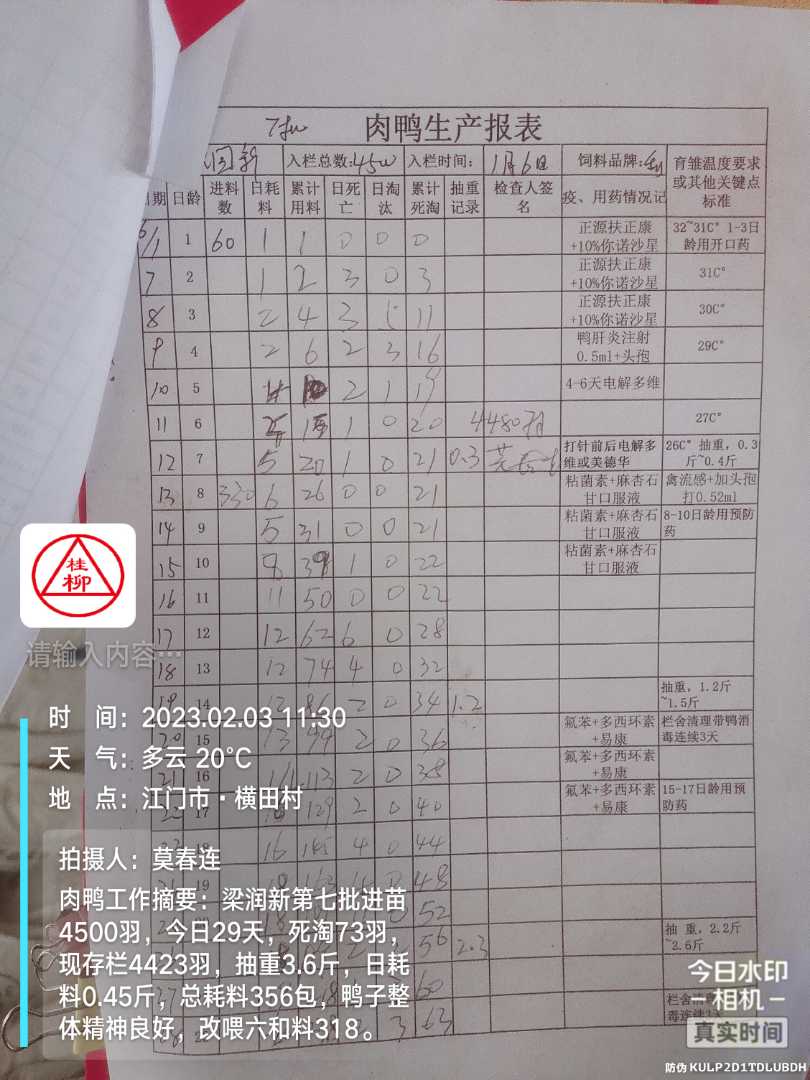 肉鸭生产报表
入栏总数:4500 入栏时间: 1月6日 饲料品牌: 育雏温度要求或其他关键点标准
日期 日龄 进料数 日耗料 累计用料 日死亡 日淘汰 累计死淘 抽重记录 检查人签名 疫、用药情况记
6/1 1 60 1 1 0 0 0 正源扶正康+10%你诺沙星 32~31C° 1-3日龄用开口药
7 2 1 2 3 0 3 正源扶正康+10%你诺沙星 31C°
8 3 2 4 3 5 11 正源扶正康+10%你诺沙星 30C°
9 4 2 6 2 3 16 鸭肝炎注射0.5ml+头孢 29C°
10 5 4 10 2 1 19 4-6天电解多维
11 6 5 15 1 0 20 4480羽 27C°
12 7 5 20 1 0 21 0.3 打针前后电解多维或美德华 26C° 抽重,0.3斤~0.4斤
13 8 330 6 26 0 0 21 粘菌素+麻杏石甘口服液 禽流感+加头孢打0.52ml
14 9 5 31 0 0 21 粘菌素+麻杏石甘口服液 8-10日龄用预防药
15 10 8 39 1 0 22 粘菌素+麻杏石甘口服液
16 11 11 50 0 0 22
17 12 12 62 6 0 28
18 13 12 74 4 0 32
19 14 12 86 2 0 34 1.2 抽重,1.2斤~1.5斤
20 15 13 99 2 0 36 氟苯+多西环素+易康 栏舍清理带鸭消毒连续3天
21 16 113 2 0 38 氟苯+多西环素+易康
17 129 2 0 40 氟苯+多西环素+易康 15-17日龄用预防药
18 16 145 4 0 44
19 48
52
56 2.3 抽 重,2.2斤~2.6斤
60
3 63
桂柳
请输入内容...
时 间: 2023.02.03 11:30
天 气: 多云 20°C
地 点: 江门市·横田村
拍摄人: 莫春连
肉鸭工作摘要: 梁润新第七批进苗
4500羽,今日29天,死淘73羽,
现存栏4423羽,抽重3.6斤,日耗
料0.45斤,总耗料356包,鸭子整
体精神良好,改喂六和料318。
今日水印
-相机-
真实时间
防伪 KULP2D1TDLUBDH